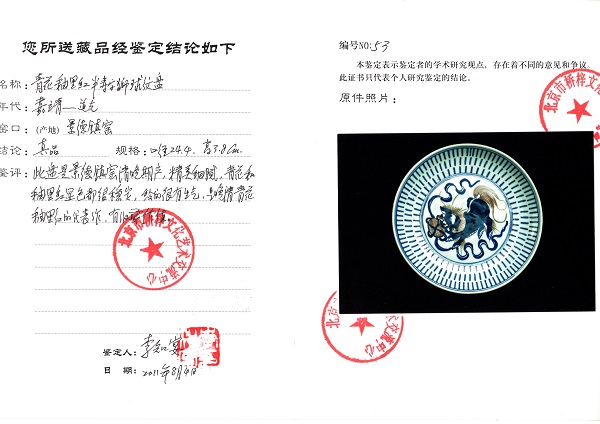 您所送藏品经鉴定结论如下
名称：青花釉里红半寿字狮球纹盘
年代：嘉靖—道光
窑口：(产地) 景德镇窑
结论：真品 规格：口径24.4. 高3.8cm.
鉴评：此盘是景德镇窑清晚期产，精美细腻，青花和
釉里红呈色都很稳定，绘的很有生气，是晚清青花
釉里红的代表作，有收藏价值。
北京市桥梓文化艺术交流中心
鉴定人：李知宴
日 期：2011年8月4日
编号NO:53
本鉴定表示鉴定者的学术研究观点，存在着不同的意见和争议。
此证书只代表个人研究鉴定的结论。
原件照片：
北京市桥梓文化
艺术交流中心